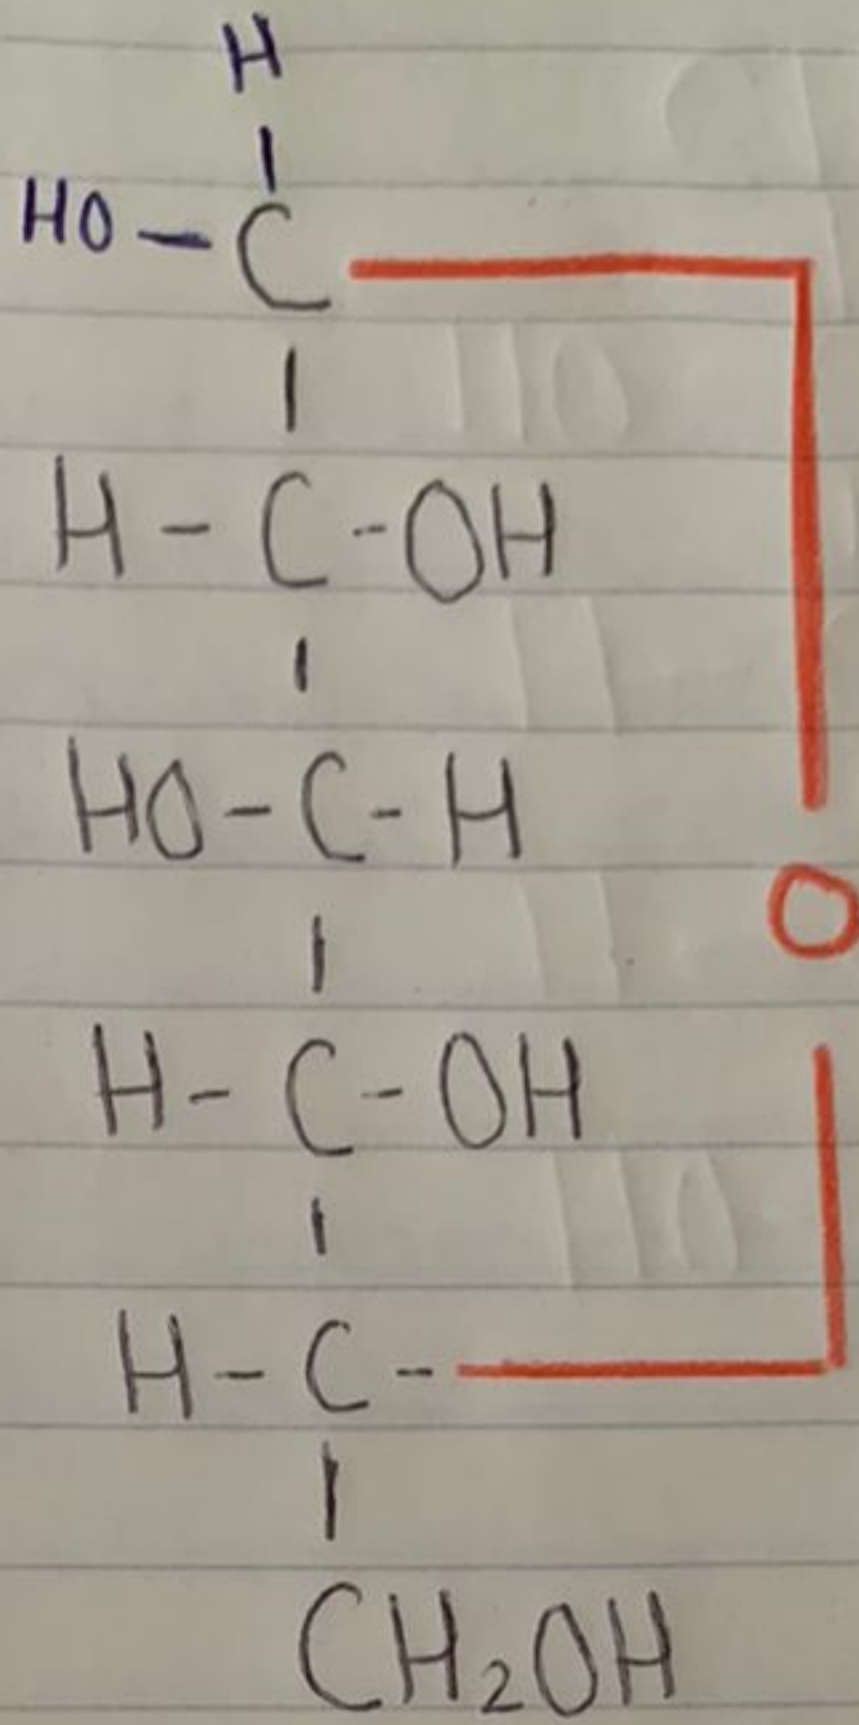 H
HO - C
H - C - OH
HO - C - H
O
H - C - OH
H - C -
CH₂OH